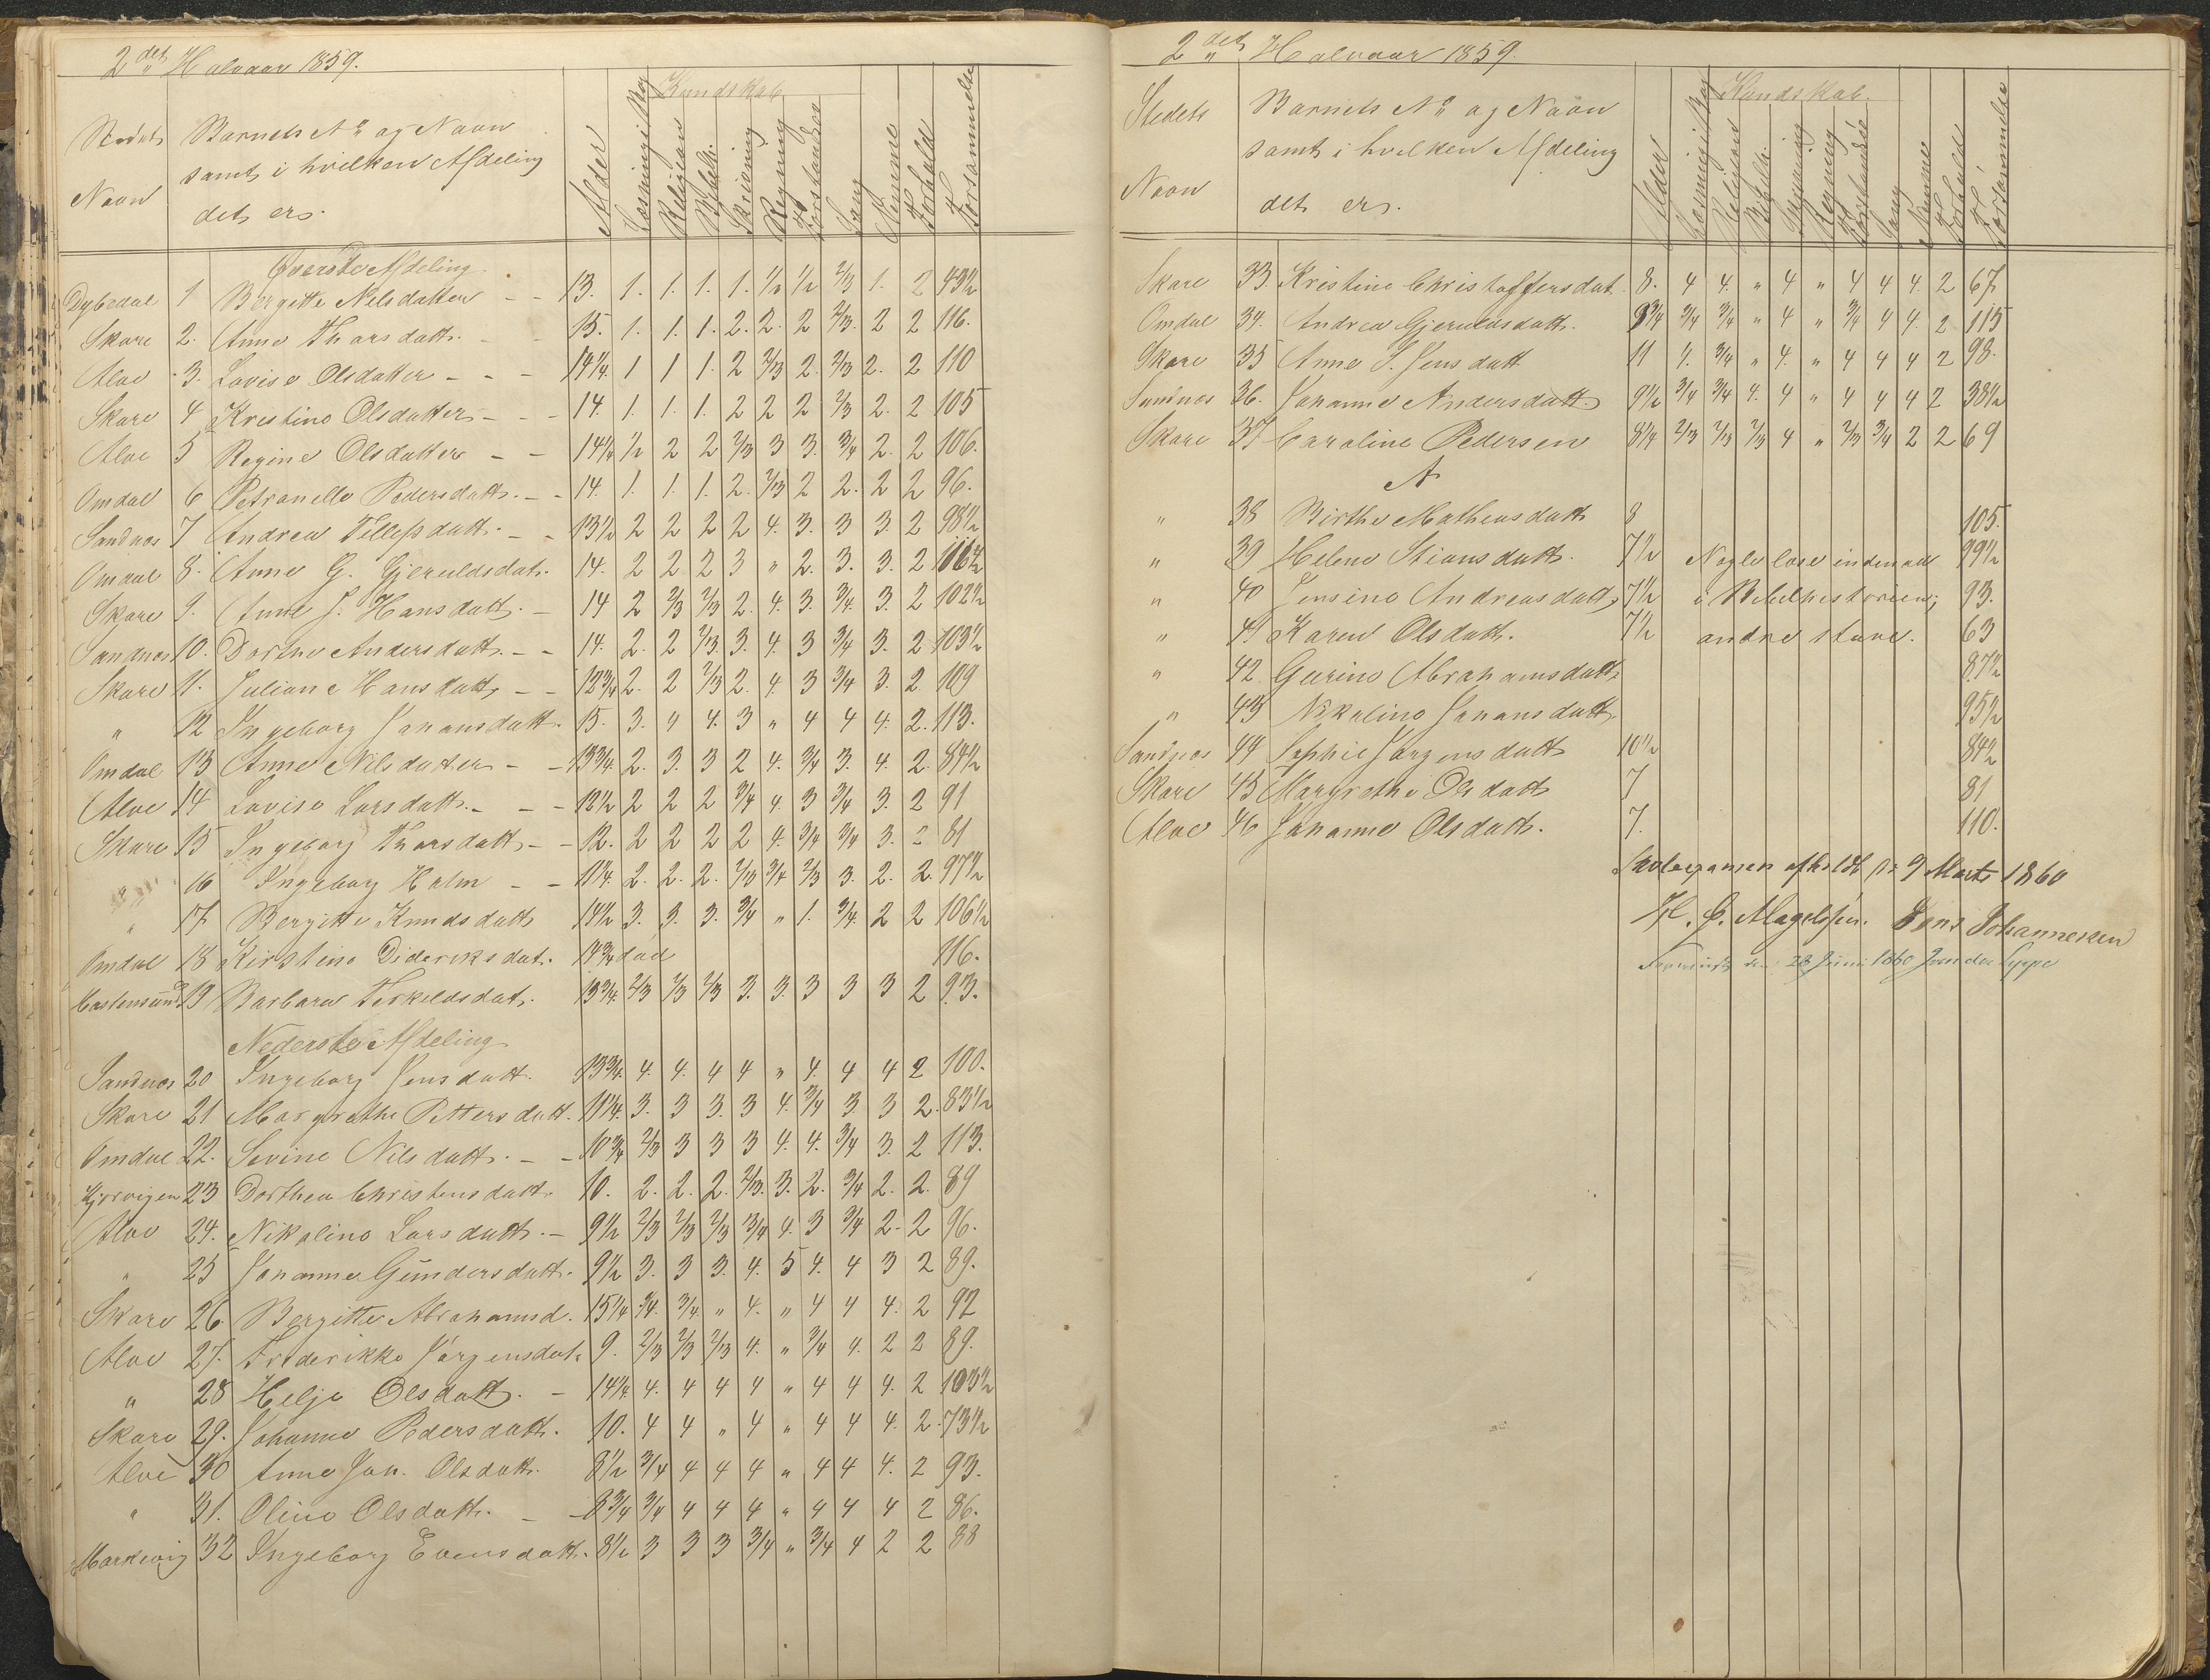 2det Halvaar 1859.
Stedets Navn
Barnets No og Navn samt i hvilken Afdeling det er.
Alder
Læsning i Bog
Kundskab
Religion
Bibelh.
Skrivning
Regning
Forstandse
Sang
Nemme
Forhold
Forsømmelse
Øverste Afdeling
Dybedal 1 Bergitte Nilsdatter - - 13. 1. 1. 1. 1. 1/2 1/2 2/3 1. 2 43 1/2
Skare 2. Anne Thorsdatt. - - 15. 1. 1. 1. 2. 2. 2 2/3. 2 2 116.
Alve 3. Lovise Olsdatter - - - 14 1/4. 1 1 1. 2 2/3 2. 2/3 2. 2 110
Skare 4 Kristine Olsdatter - - - 14. 1. 1. 1. 2 2 2 2/3 2. 2 105
Alve 5 Regine Olsdatter - - 14 1/4 1/2 2 2 2/3 3 3. 3/4 2. 2 106.
Omdal 6 Petronelle Pedersdatt. - - 14. 1. 1. 1. 2. 2/3 2 2. 2 2 96.
Sandnæs 7 Andrea Tellefsdatt. - - 13 1/2 2 2 2 2 4. 3. 3 3. 2 98 1/2
Omdal 8. Anne G. Gjeruldsdat. 14. 2 2 2 3 " 2. 3. 3. 2 116 1/2
Skare 9. Anne J. Hansdatt. - 14 2 2/3 2/3 2. 4. 3. 3/4. 3. 2 102 1/2
Sandnæs 10. Dorthe Andersdatt. - - 14. 2. 2 2/3. 3. 4. 3 3/4 3. 2 103 1/2
Skare 11. Juliane Hansdatt. - - 12 3/4 2. 2 2/3 2. 4. 3 3/4 3. 2 109
" 12 Ingeborg Johansdatt. 15. 3. 4 4. 3 " 4 4 4. 2. 113.
Omdal 13 Anne Nilsdatter - - 13 3/4. 2. 3. 3 2 4. 3/4 3. 4. 2. 84 1/2
Alve 14 Lovise Larsdatt. - - - 12 1/2 2 2 2 3/4 4. 3 3/4 3. 2 91
Skare 15 Ingeborg Thorsdatt. - - 12. 2 2 2 2 4. 3/4 3/4 3. 2 81
16 Ingeborg Holm - - 11 1/4. 2. 2. 2. 2/3 3/4 2/3 3. 2. 2. 97 1/2
" 17 Bergitte Knudsdatt 14 1/2 3. 3. 3. 3/4 " 1. 3/4. 2 2 106 1/2
Omdal 18 Kirstine Dideriksdat. 14 3/4 død 116.
19 Barbara Terkeldsdat. 13 3/4. 2/3 2/3 2/3 3. 3. 3 3 3 2 93.
Nederste Afdeling
Sandnæs 20 Ingeborg Jensdatt. 13 3/4. 4. 4. 4 4 " 4. 4 4 2 100.
Skare 21 Margrethe Pettersdatt. 11 1/4. 3. 3 3. 3 4. 3/4 3. 3 2. 83 1/2
Omdal 22. Sevine Nilsdatt. - - 10 3/4 2/3 3 3 3 4. 4. 3/4 3. 2 113.
Kjørvigen 23 Dorthea Christensdatt. 10. 2. 2. 2. 2/3. 3. 2. 3/4 2. 2. 89
Alve 24. Nikoline Larsdatt. - 9 1/2 2/3 2/3 2/3 3/4 4. 3 3/4 2. 2 96.
" 25 Johanne Gundersdatt. 9 1/2 3. 3 3. 4. 5 4. 4 3 2 89.
Skare 26 Bergitte Abrahamsd. 15 1/4 3/4. 3/4. " 4. " 4 4 4. 2 92
Alve 27. Frederikke Jørgensdat. 9. 2/3 2/3 2/3 4. " 3/4 4. 2 2 89.
" 28 Helje Olsdatt. - 14 1/4. 4. 4 4 4 " 4 4 4. 2 103 1/2
Skare 29. Johanne Pedersdatt. 10. 4 4 " 4 " 4 4 4. 2. 73 1/2
Alve 30 Anne Joh. Olsdatt. 8 1/2 3/4 4 4 4 " 4 4 4. 2 93.
" 31. Oline Olsdatt. - - 8 3/4 3/4 4 4 4 " 4 4 4 2 86.
Markevig 32 Ingeborg Evensdatt. 8 1/2 3 3 3 3/4 " 3/4 4 2 2 88
2det Halvaar 1859.
Stedets Navn
Barnets No og Navn samt i hvilken Afdeling det er.
Alder
Læsning i Bog
Kundskab.
Religion
Bibelh.
Skrivning
Regning
Forstandse
Sang
Nemme
Forhold
Forsømmelse
Skare 33. Kristine Christoffersdat. 8. 4 4. " 4. " 4 4 4. 2 67
Omdal 34. Andrea Gjeruldsdatt. 9 3/4 3/4 3/4 " 4 " 3/4 4 4. 2 115
Skare 35 Anne S. Jensdatt 11 4. 3/4 " 4. " 4 4 4 2 98.
Sandnæs 36. Johanne Andersdatt. 9 1/2 3/4 3/4 4. 4 " 4 4 4 2 38 1/2
Skare 37 Caroline Pedersen 8 1/4 2/3 2/3 2/3 4 " 2/3 3/4 2 2 69
" 38 Birthe Matheusdatt 8 105.
" 39 Helene Stiansdatt. 7 1/2 Nogle læse indenad 99 1/2
" 40 Jensine Andreasdatt, 7 1/2 i Bibelhistorien; 93.
" 41 Karen Olsdatt. 7 1/2 andre stave. 63
" 42. Gurine Abrahamsdatt. 87 1/2
" 43 Nikoline Johansdatt. 95 1/2
Sandnæs 44 Sophie Jørgensdatt 10 1/2 84 1/2
Skare 45 Margrethe Olsdatt 7 81
Alve 46 Johanne Olsdatt. 7. 110.
Skoleexamen afholdt d. 9 Marts 1860
H. G. Magelssen. Jens Johannesen
28 Juni 1860